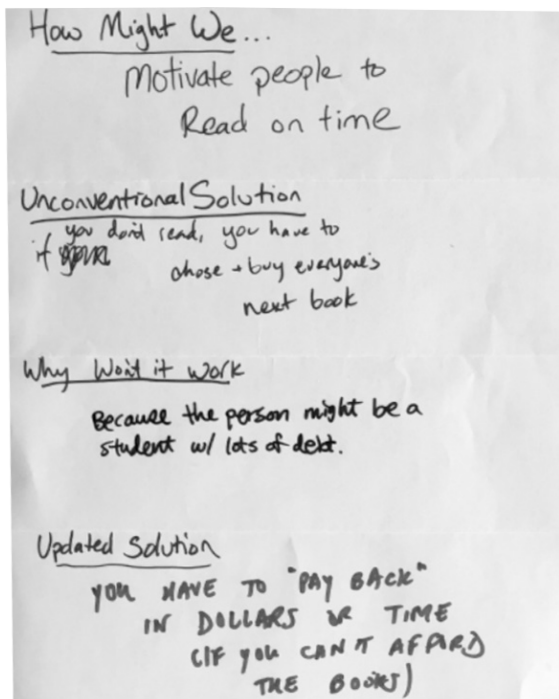 How Might We...
Motivate people to
Read on time
Unconventional Solution
if you don't read, you have to
chose + buy everyone's
next book
Why Won't it work
Because the person might be a
student w/ lots of debt.
Updated Solution
YOU HAVE TO "PAY BACK"
IN DOLLARS OR TIME
(IF YOU CAN'T AFFORD
THE BOOKS)